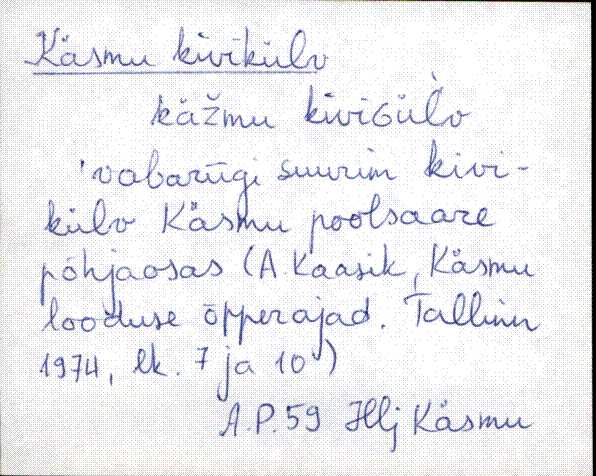 Käsmu kivikülv
käžmu kiviGüĺv
'vabariigi suurim kivi-
külv Käsmu poolsaare
põhjaosas (A. Kaasik, Käsmu
looduse õpperajad. Tallinn
1974, lk. 7 ja 10')
A.P.59 Hlj Käsmu